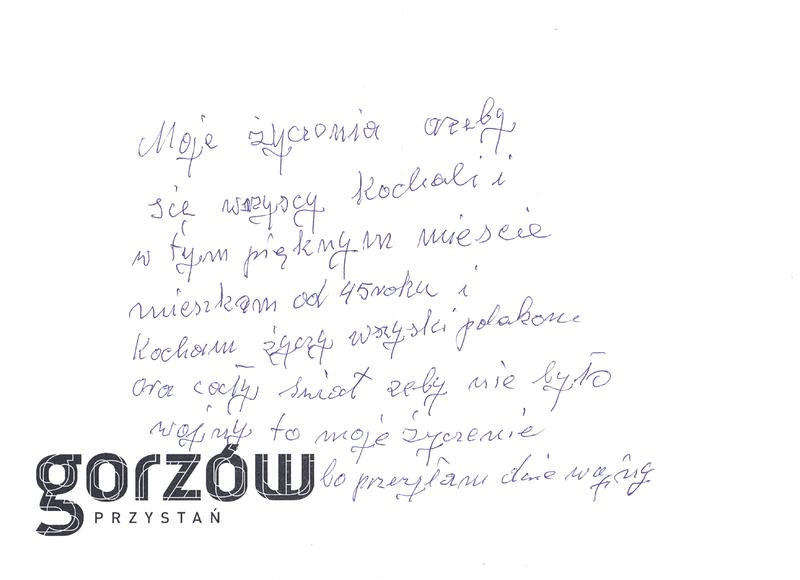 Moje życzenia ażeby
się wszyscy kochali i
w tym pięknym mieście
mieszkam od 45 roku i
Kocham życzę wszyski polakom
ora cały świat żeby nie było
wojny to moje życzenie
bo przeżyłam dwie wojny
gorzów
PRZYSTAŃ